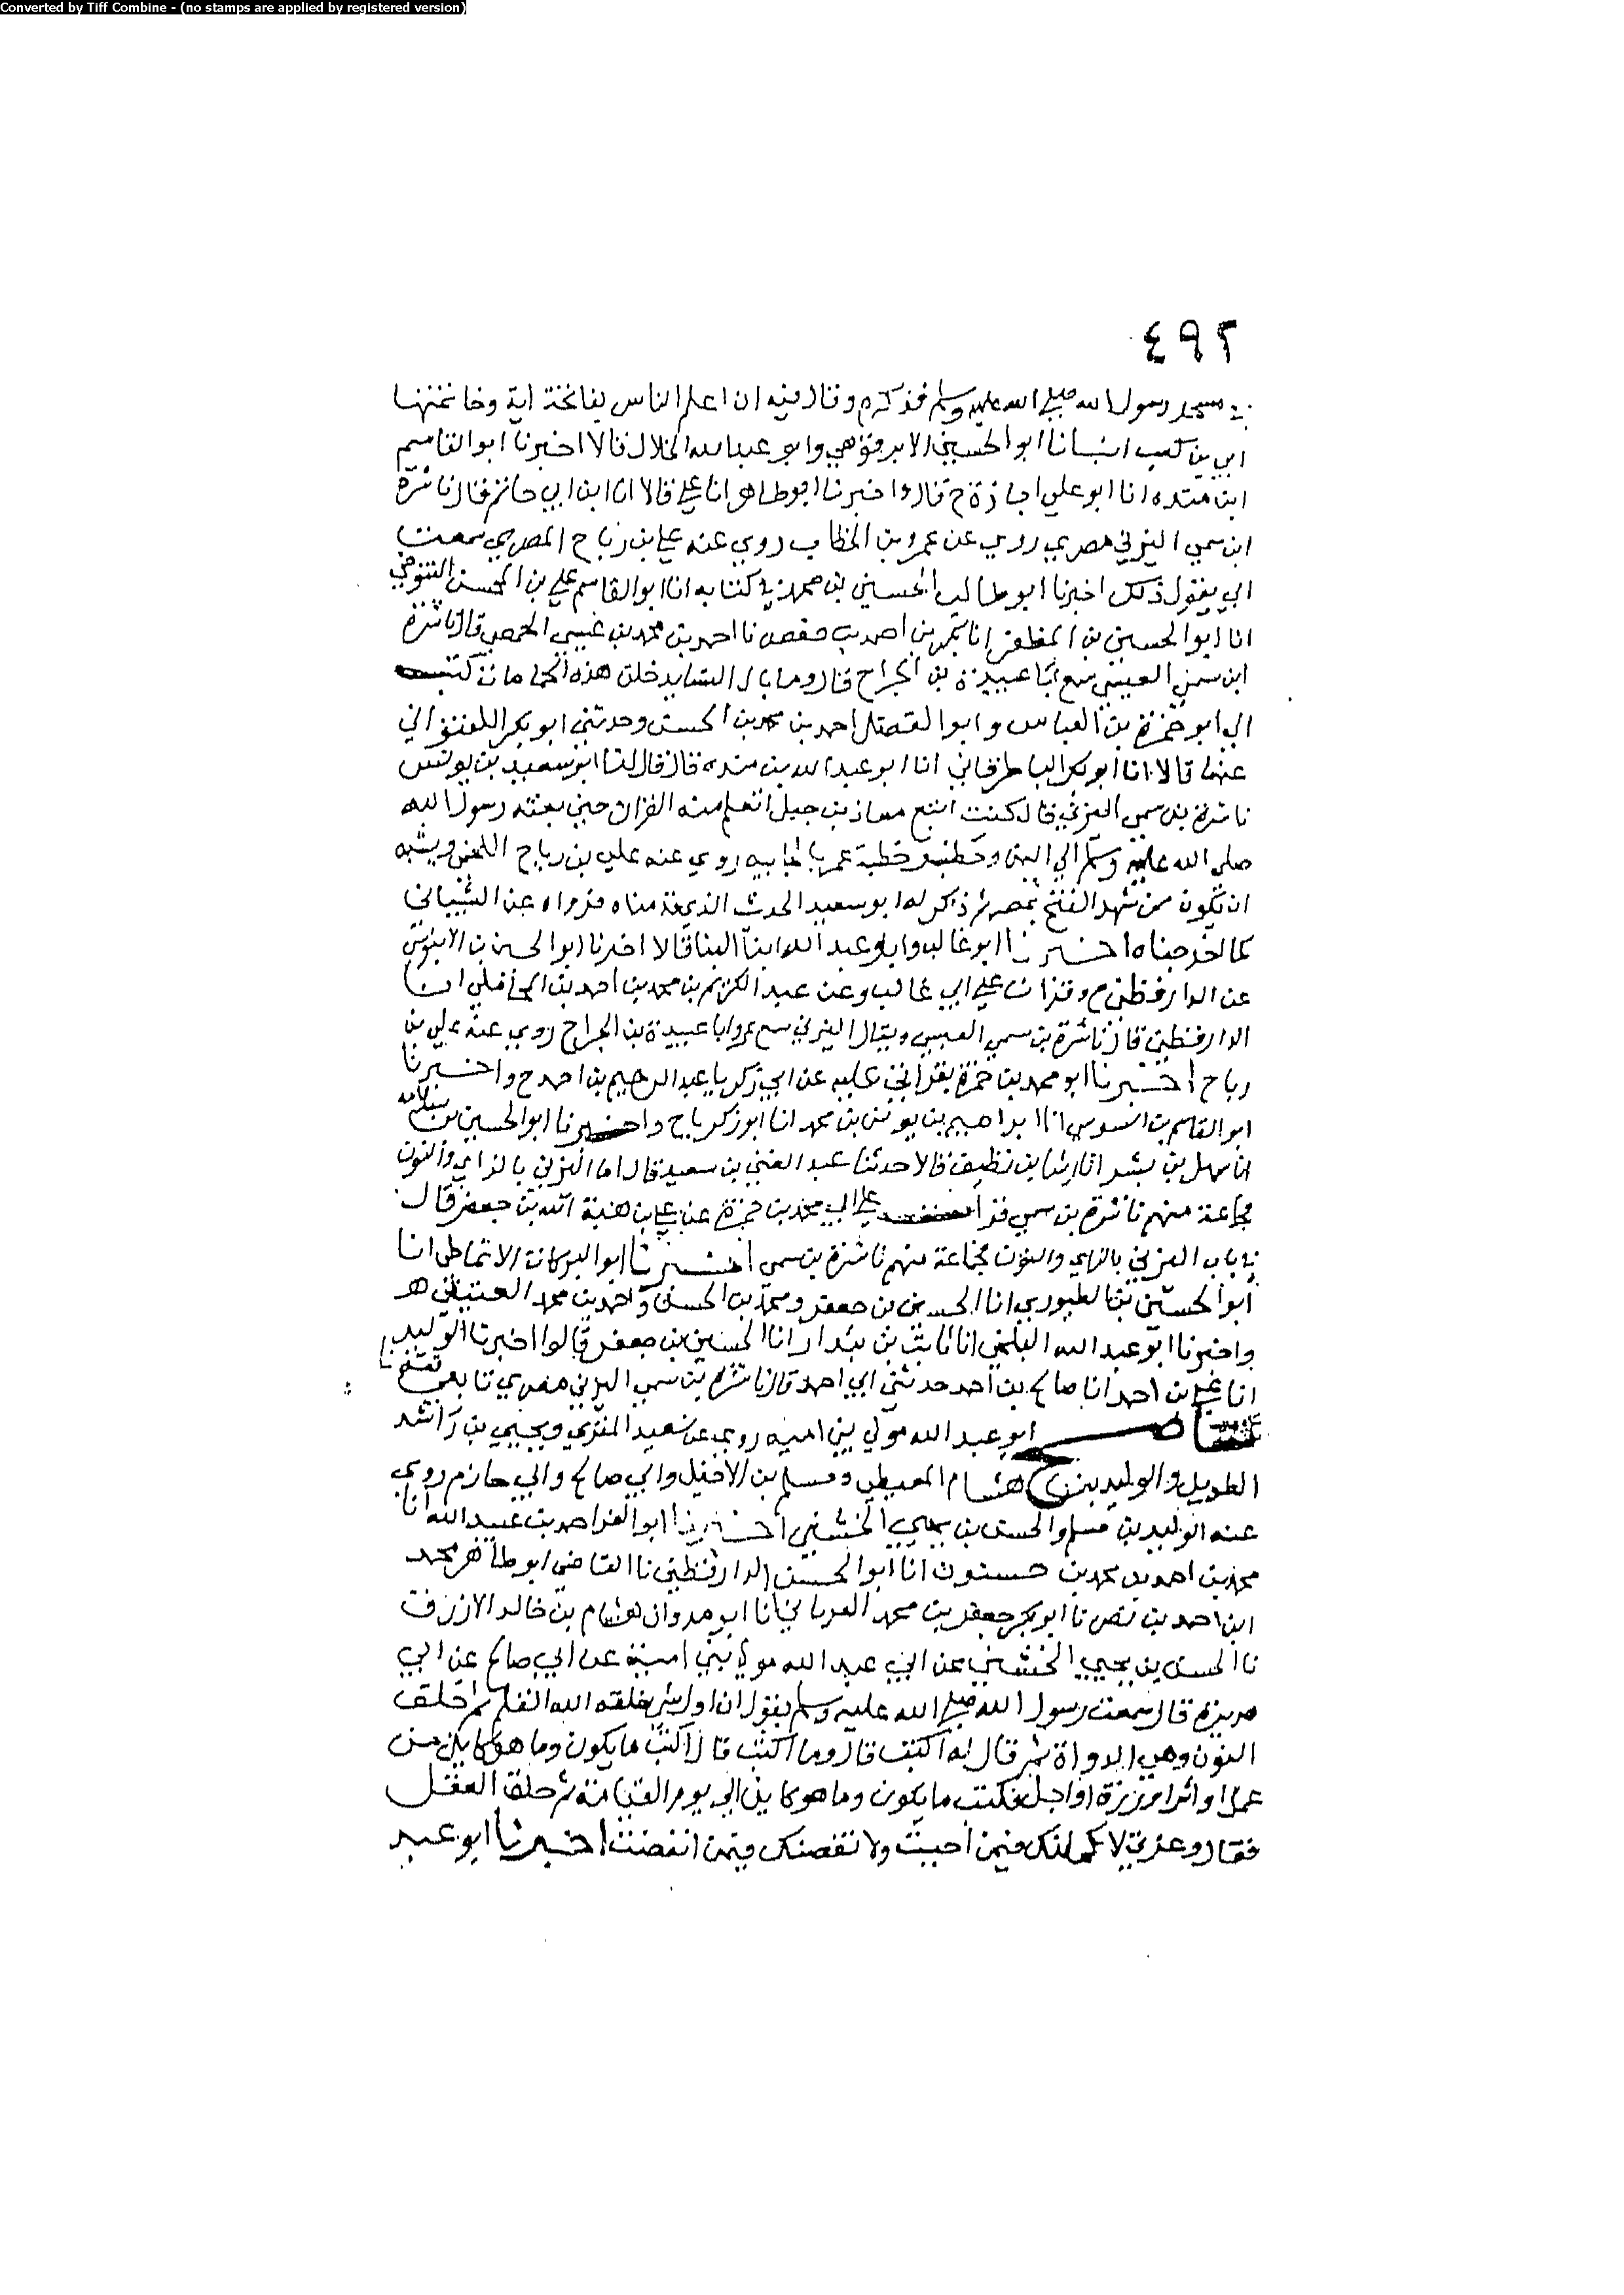 Converted by Tiff Combine - (no stamps are applied by registered version)
٤٩٢
في مسجد رسول الله صلى الله عليه وسلم فذكره وقال فيه ان اعلم الناس بفاتحة اية وخاتمتها
ابي بن كعب انبانا ابو الحسين الابرقوهي وابو عبد الله الخلال قالا اخبرنا ابو القاسم
ابن منده انا ابو علي اجازة ح قال واخبرنا ابو طاهر انا علي قالا انا ابن ابي حاتم قال ناشرة
ابن سمي اليزني مصري روى عن عمر بن الخطاب روى عنه علي بن رباح المصري سمعت
ابي يقول ذلك اخبرنا ابو طالب الحسين بن محمد في كتابه انا ابو القاسم علي بن المحسن التنوخي
انا ابو الحسين بن المظفر انا بكر بن احمد بن حفص نا احمد بن محمد بن عيسى الحمصي قال ناشرة
ابن سمي العبسي سمع ابا عبيدة بن الجراح قال وما بال خلق هذه كتب
الي ابو حمزة بن العباس وابو الفضل احمد بن محمد بن الحسن وحدثني ابو بكر اللفتواني
عنهما قالا انا ابو بكر الباطرقاني انا ابو عبد الله بن منده قال قال لنا ابو سعيد بن يونس
ناشرة بن سمي اليزني قال كنت اتبع معاذ بن جبل اتعلم منه القران حين بعثه رسول الله
صلى الله عليه وسلم الى اليمن وخطبة عمر بالجابيه روى عنه علي بن رباح اللخمي ويشبه
ان يكون ممن شهد الفتح بمصر ثم ذكر له ابو سعيد الحديث الذي قدمناه فرواه عن الشيباني
كما اخرجناه اخبرنا ابو غالب وابو عبد الله ابنا البنا قالا اخبرنا ابو الحسين بن الابنوسي
عن الدارقطني ح وقرات على ابي غالب وعن عبد الكريم بن محمد بن احمد بن المحاملي انا
الدارقطني قال ناشرة بن سمي العبسي ويقال اليزني سمع عمر وابا عبيدة بن الجراح روى عنه علي بن
رباح اخبرنا ابو محمد بن حمزة بقراتي عليه عن ابي زكريا عبد الرحيم بن احمد ح واخبرنا
ابو القاسم بن السوسي انا ابراهيم بن يونس بن محمد انا ابو زكريا ح واخبرنا ابو الحسين بن سلامه
انا سهل بن بشر انا رشا بن نظيف قالا حدثنا عبد الغني بن سعيد قال اما اليزني بالزاي والنون
جماعة منهم ناشرة بن سمي قرات على ابي محمد بن حمزة عن علي بن هبة الله بن جعفر قال
في باب اليزني بالزاي والنون جماعة منهم ناشرة بن سمي اخبرنا ابو البركات الانماطي انا
ابو الحسين بن الطيوري انا الحسين بن جعفر ومحمد بن الحسن واحمد بن محمد العتيقي ح
واخبرنا ابو عبد الله البلخي انا ثابت بن بندار انا الحسين بن جعفر قالوا اخبرنا الوليد
انا علي بن احمد انا صالح بن احمد حدثني ابي احمد قال ناشرة بن سمي اليزني مصري تابعي ثقة
ناصح ابو عبد الله مولى بني امية روى عن سعيد المقبري ويحيى بن راشد
الطويل والوليد بن هشام المعيطي ومسلم بن الاخيل وابي صالح وابي حازم روى
عنه الوليد بن مسلم والحسن بن يحيى الخشني اخبرنا ابو العز احمد بن عبيد الله انا
محمد بن احمد بن محمد بن حسنون انا ابو الحسن الدارقطني نا القاضي ابو طاهر محمد
ابن احمد بن نصر نا ابو بكر جعفر بن محمد الفريابي نا ابو مروان هشام بن خالد الازرق
نا الحسن بن يحيى الخشني عن ابي عبد الله مولى بني امية عن ابي صالح عن ابي
هريرة قال سمعت رسول الله صلى الله عليه وسلم يقول ان اول شي خلقه الله القلم ثم خلق
النون وهي الدواة ثم قال له اكتب قال وما اكتب قال اكتب ما يكون وما هو كاين من
عمل او اثر او رزق او اجل فكتب ما يكون وما هو كاين الى يوم القيامة ثم خلق العقل
فقال وعزتي لاكملنك فيمن احببت ولا نقصنك فيمن ابغضت اخبرنا ابو عبد